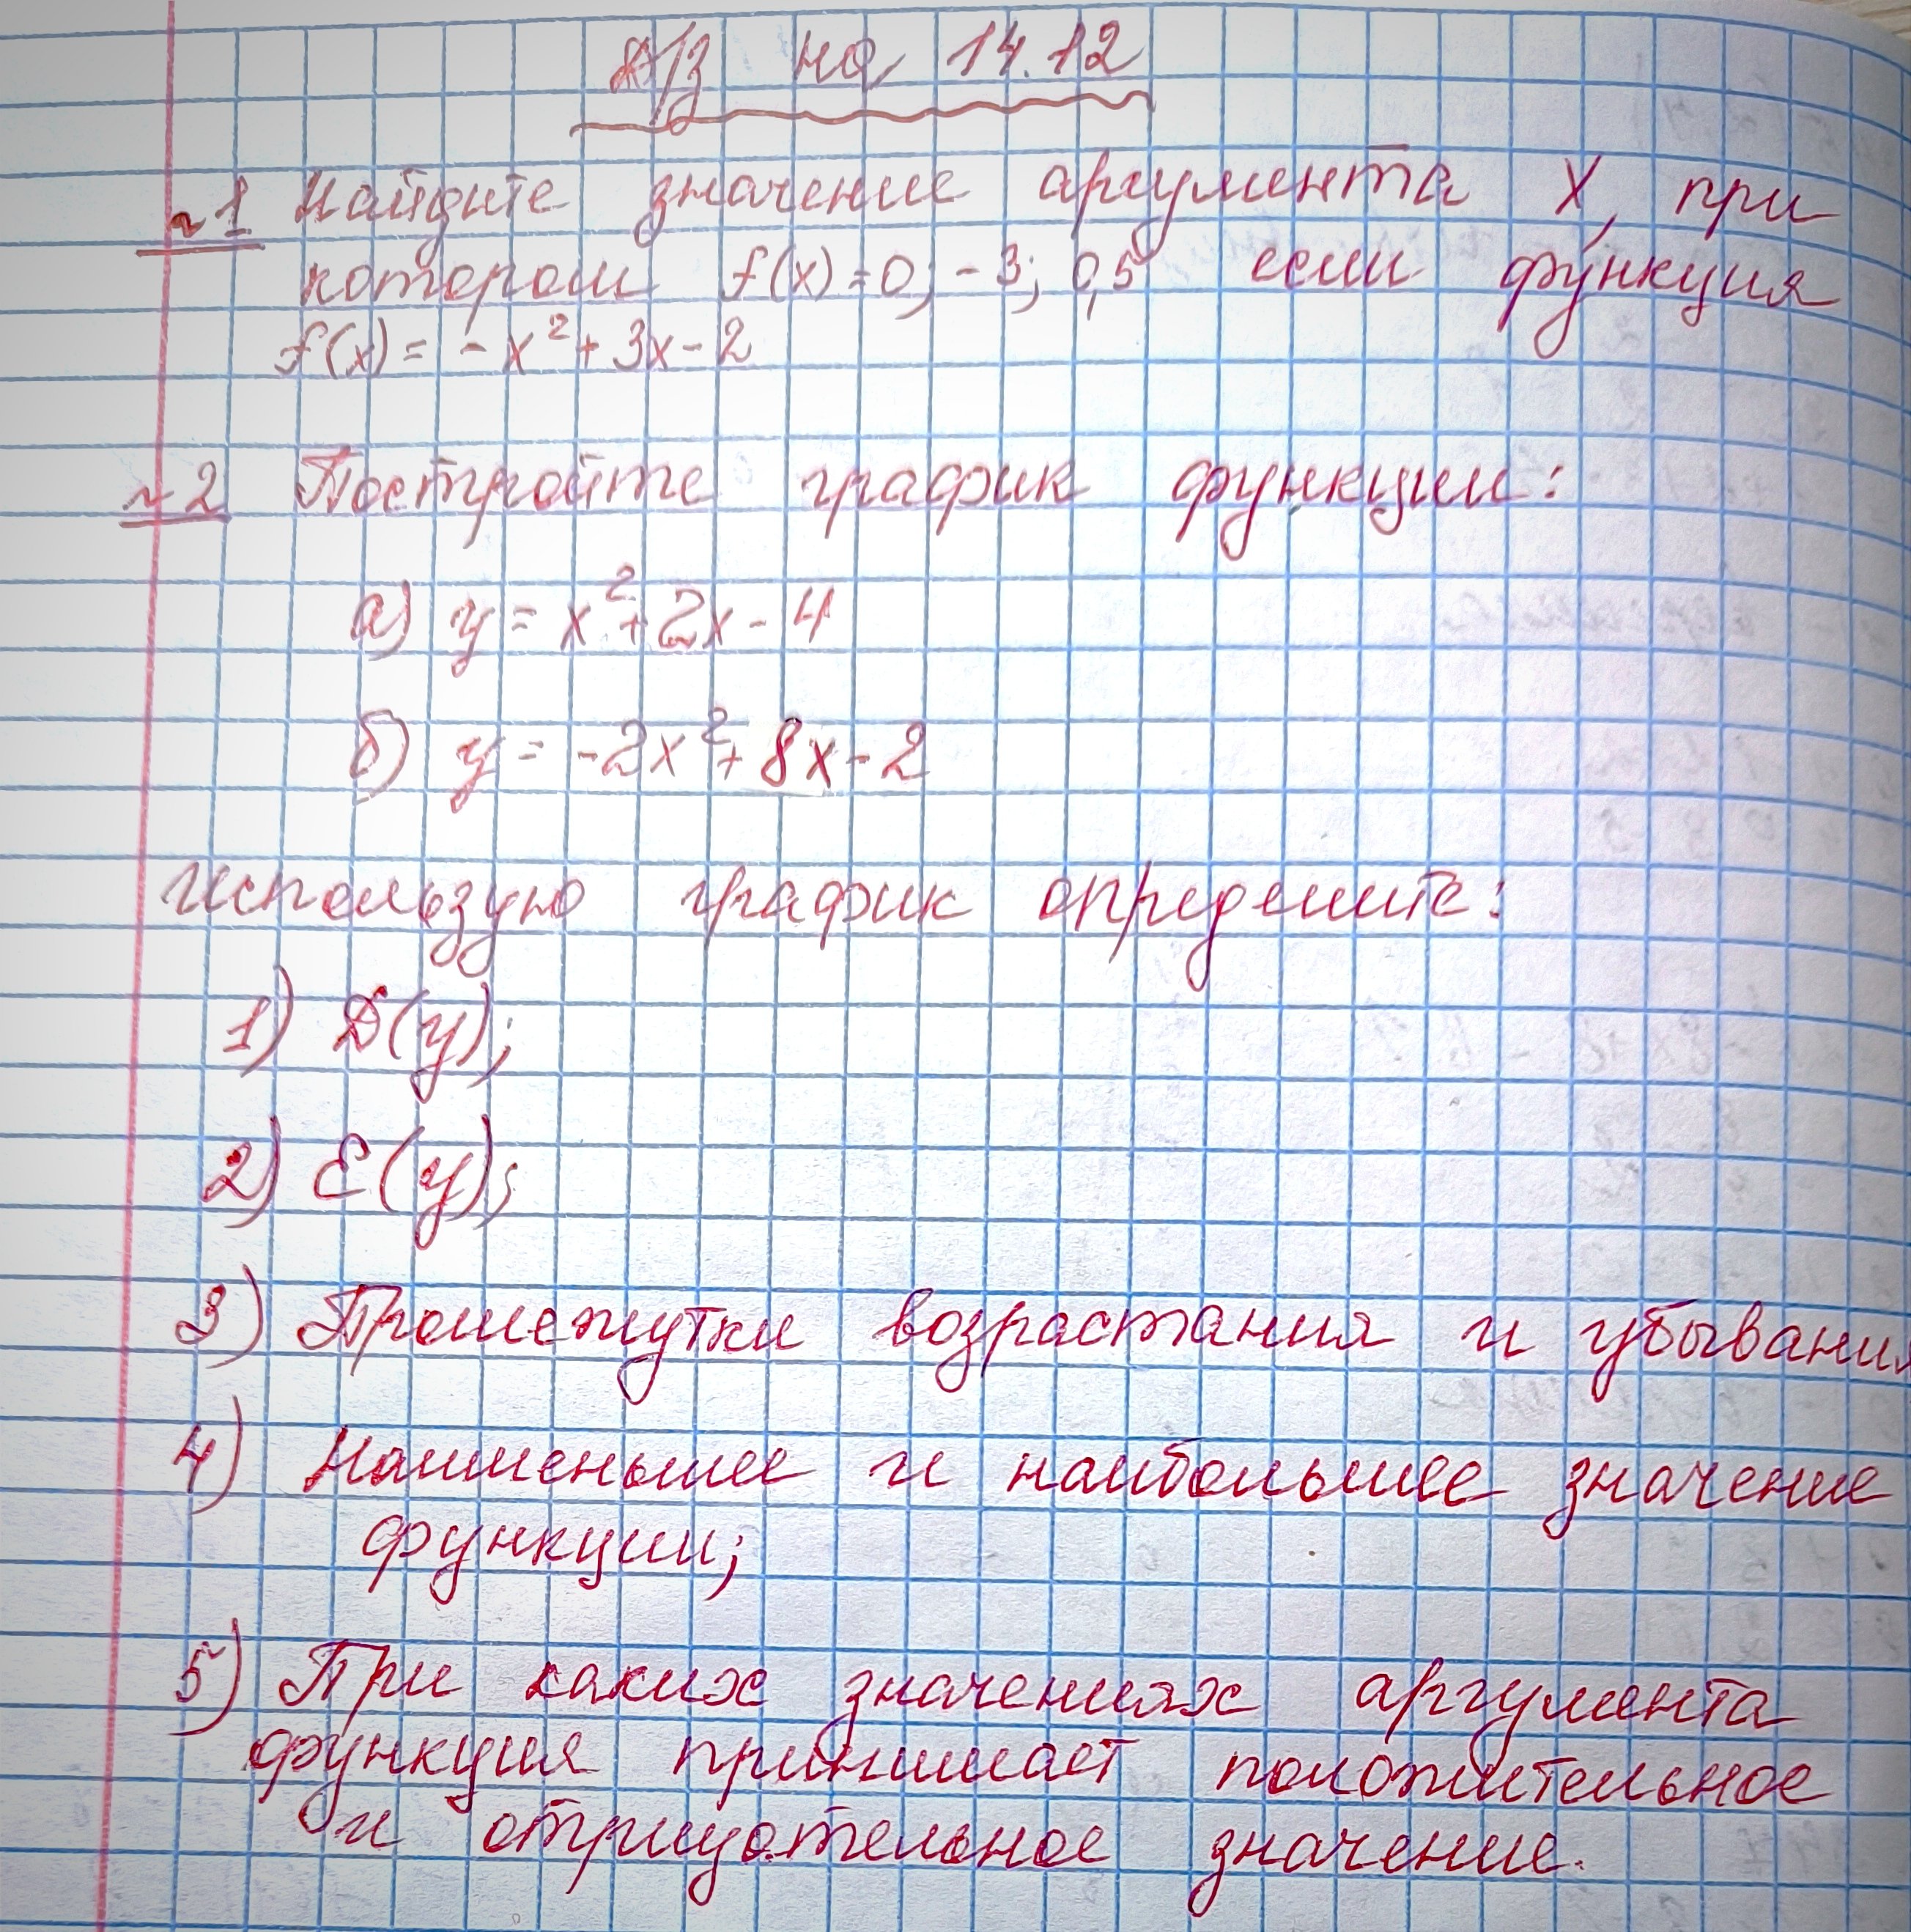 Д/З на 14.12
№1 Найдите значение аргумента X, при
котором f(x)=0; -3; 0,5 если функция
f(x) = -x² + 3x - 2
№2 Постройте график функции:
а) y = x² + 2x - 4
б) y = -2x² + 8x - 2
использую график определите:
1) Д(y);
2) E(y);
3) Промежутки возрастания и убывания
4) Наименьшее и наибольшее значение
функции;
5) При каких значениях аргумента
функция принимает положительное
и отрицательное значение.